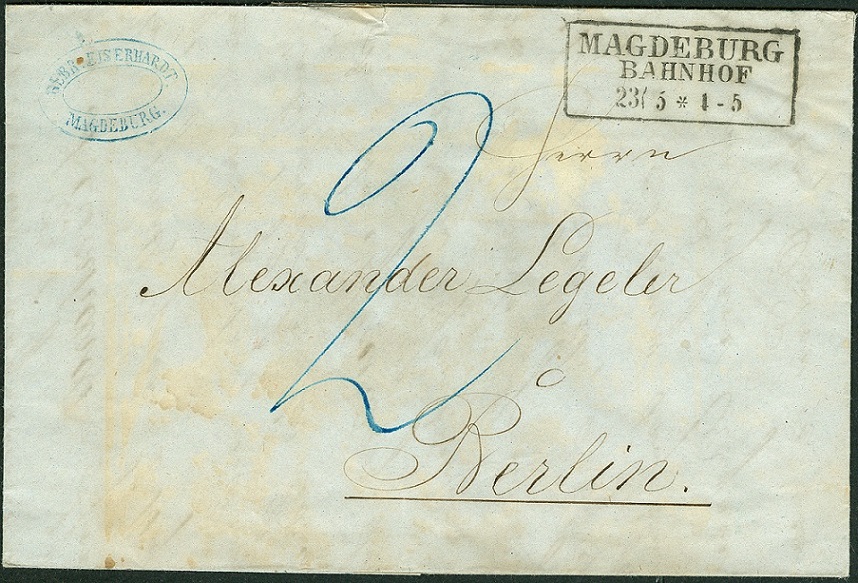 GEBR. LEISERHARDT
MAGDEBURG.
MAGDEBURG
BAHNHOF
23/5 * 4-5
2
Herrn
Alexander Legeler
Berlin.